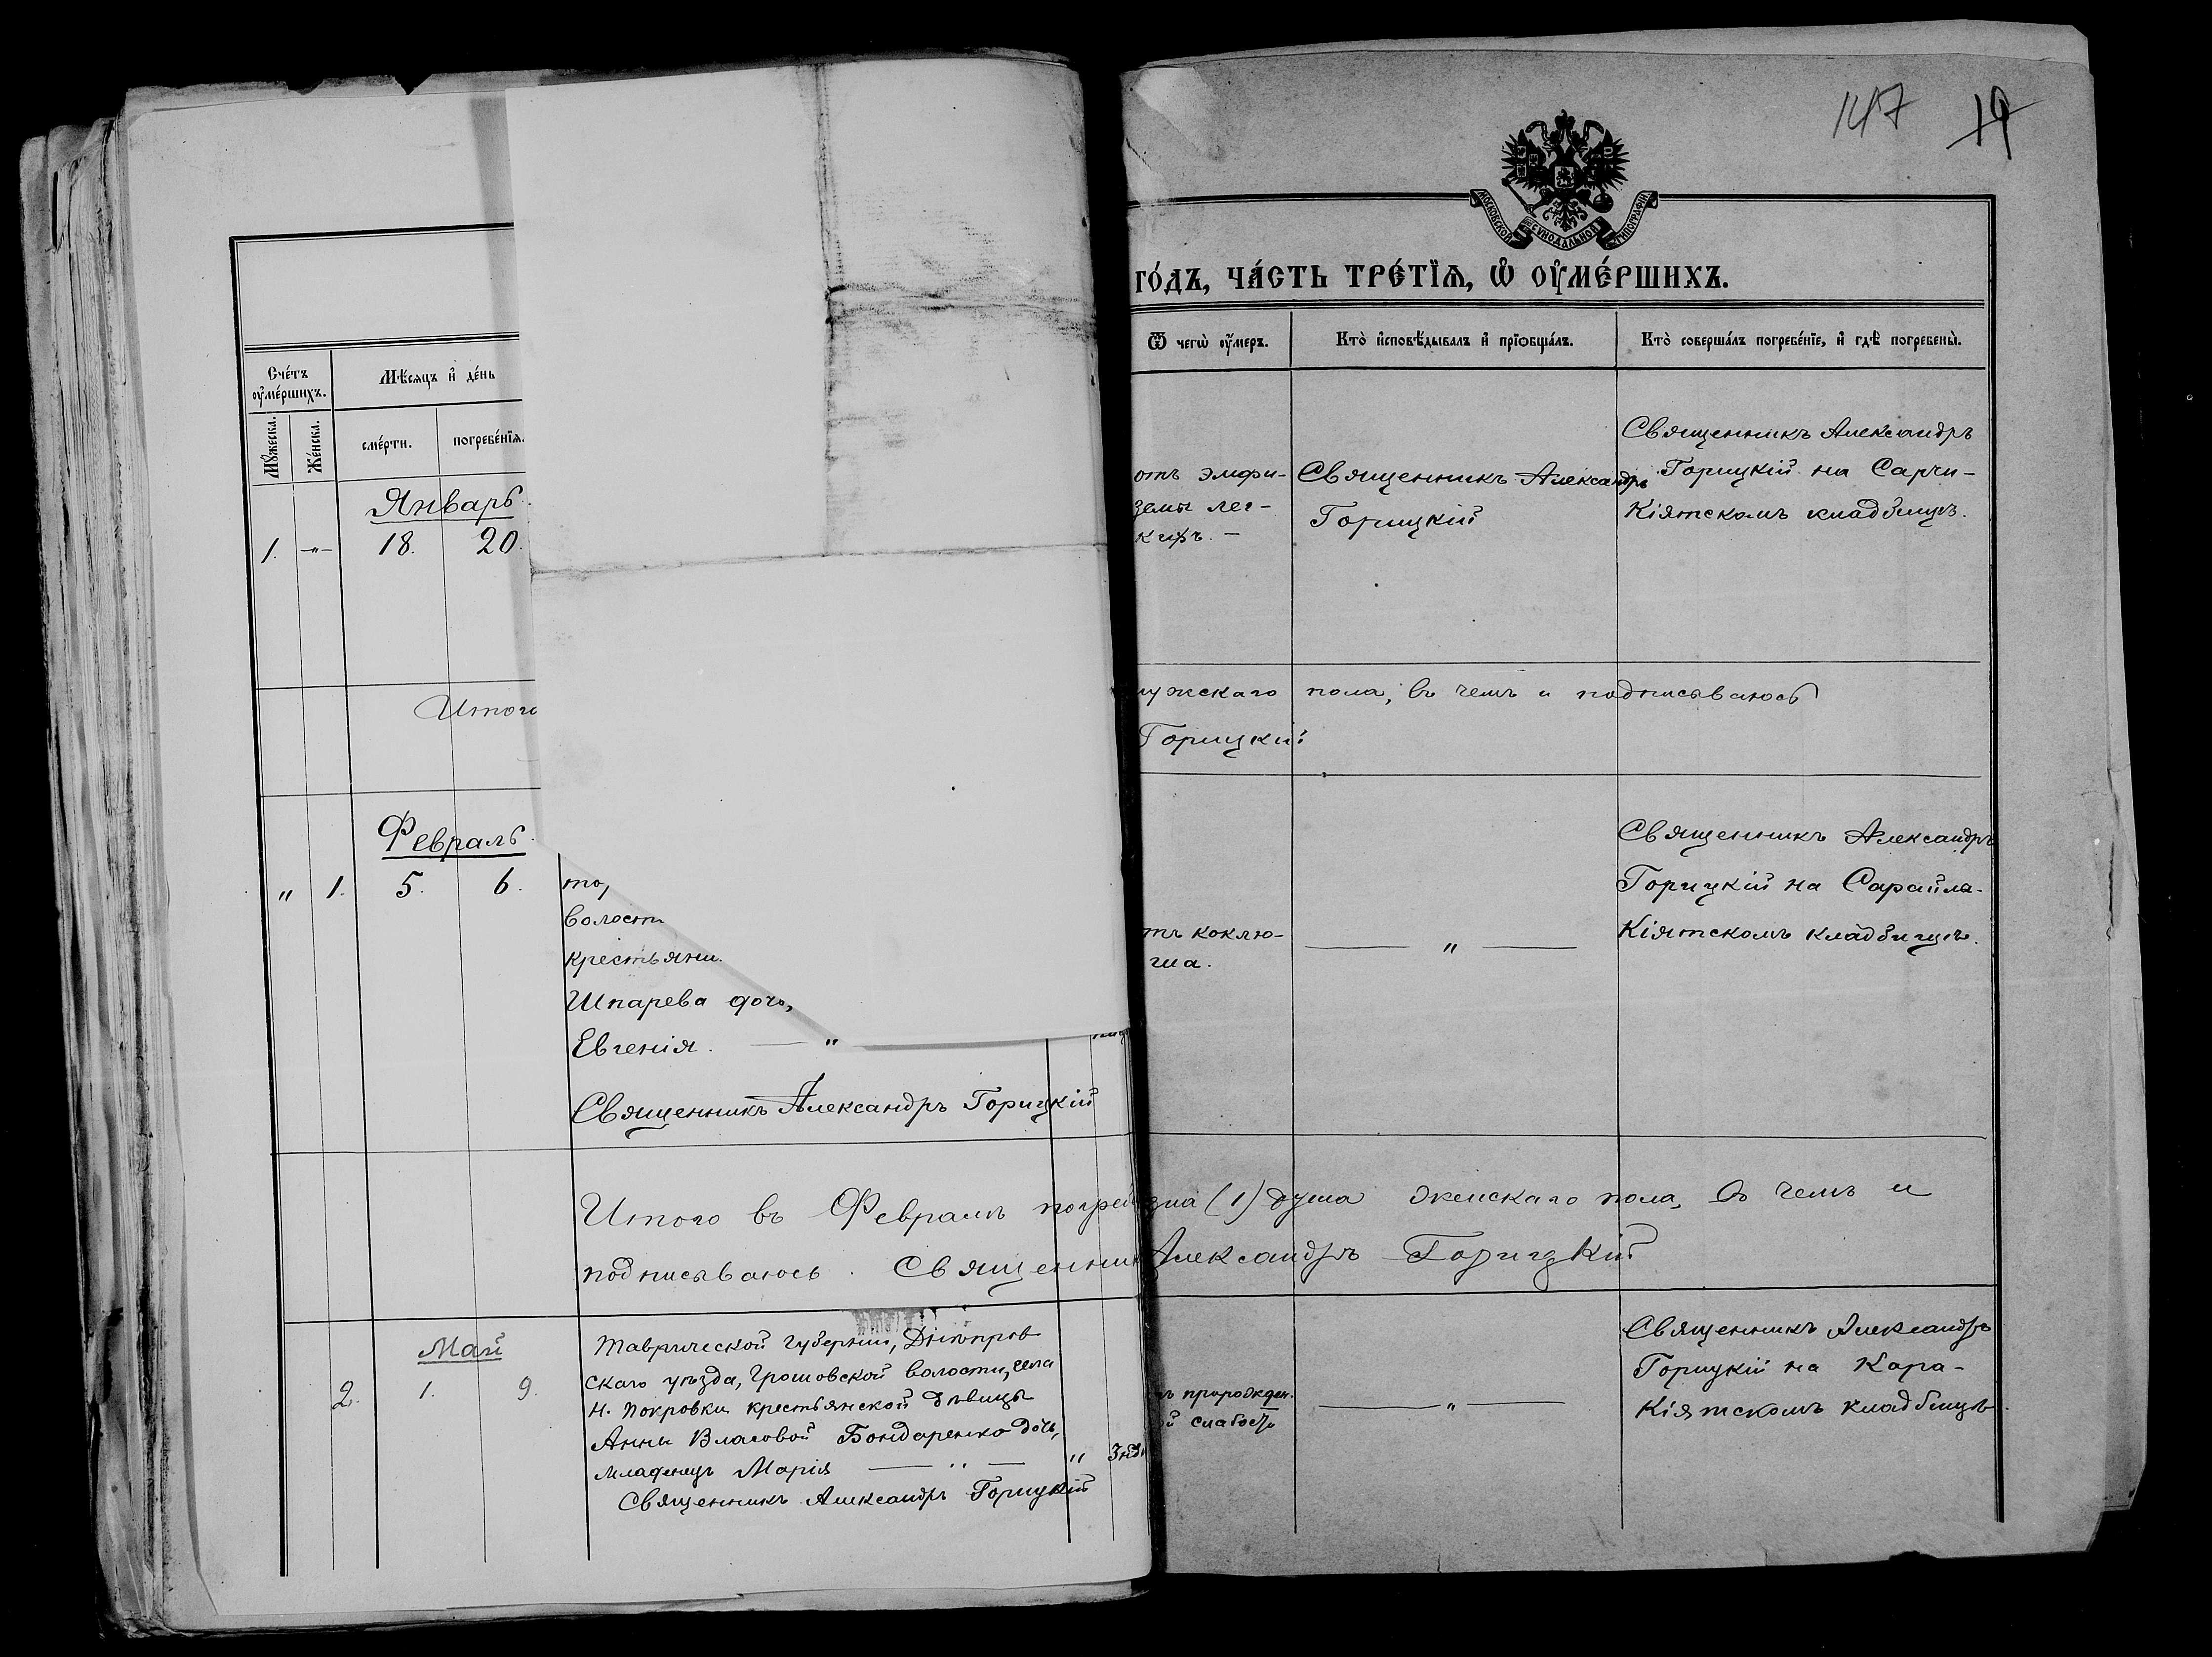 147 19
МОСКОВСКОЙ СѴНОДАЛЬНОЙ ТИПОГРАФІИ
го́дъ, ча́сть тре́тїѧ, ѡ҆ ᲂу҆ме́ршихъ.
Сче́тъ ᲂу҆ме́ршихъ.
Мѣ́сѧцъ и҆ де́нь
Мꙋ́жеска.
Же́нска.
сме́рти.
погребе́нїѧ.
Ѿ чегѡ̀ ᲂу҆́меръ.
Кто̀ и҆сповѣ́дывалъ и҆ прїѡбща́лъ.
Кто̀ соверша́лъ погребе́нїе, и҆ гдѣ̀ погребены̀.
Январь.
1. -"- 18. 20.
отъ эмфи-
земы лег-
кихъ. —
Священникъ Александръ
Горицкій
Священникъ Александръ
Горицкій на Сарчи-
Кіятскомъ кладбищѣ.
Итого
мужскаго пола, въ чемъ и подписываюсь
Горицкій
Февраль.
" 1. 5. 6.
волости
крестьяни
Шпарева дочь,
Евгенія. — "
Священникъ Александръ Горицкій
тъ коклю-
ша.
— " —
Священникъ Александръ
Горицкій на Сарайлы-
Кіятскомъ кладбищѣ.
Итого въ Февралѣ погребена (1) душа женскаго пола, въ чемъ и
подписываюсь. Священникъ Александръ Горицкій
Май
2. 1. 9.
Таврической губерніи, Днѣпров
скаго уѣзда, Громовской волости, села
Н. Покровки крестьянской дѣвицы
Анны Власовой Бондаренко дочь,
младенецъ Марія — " — "
Священникъ Александръ Горицкій
ъ прирожден.
й слабости
— " —
Священникъ Александръ
Горицкій на Кара-
Кіятскомъ кладбищѣ